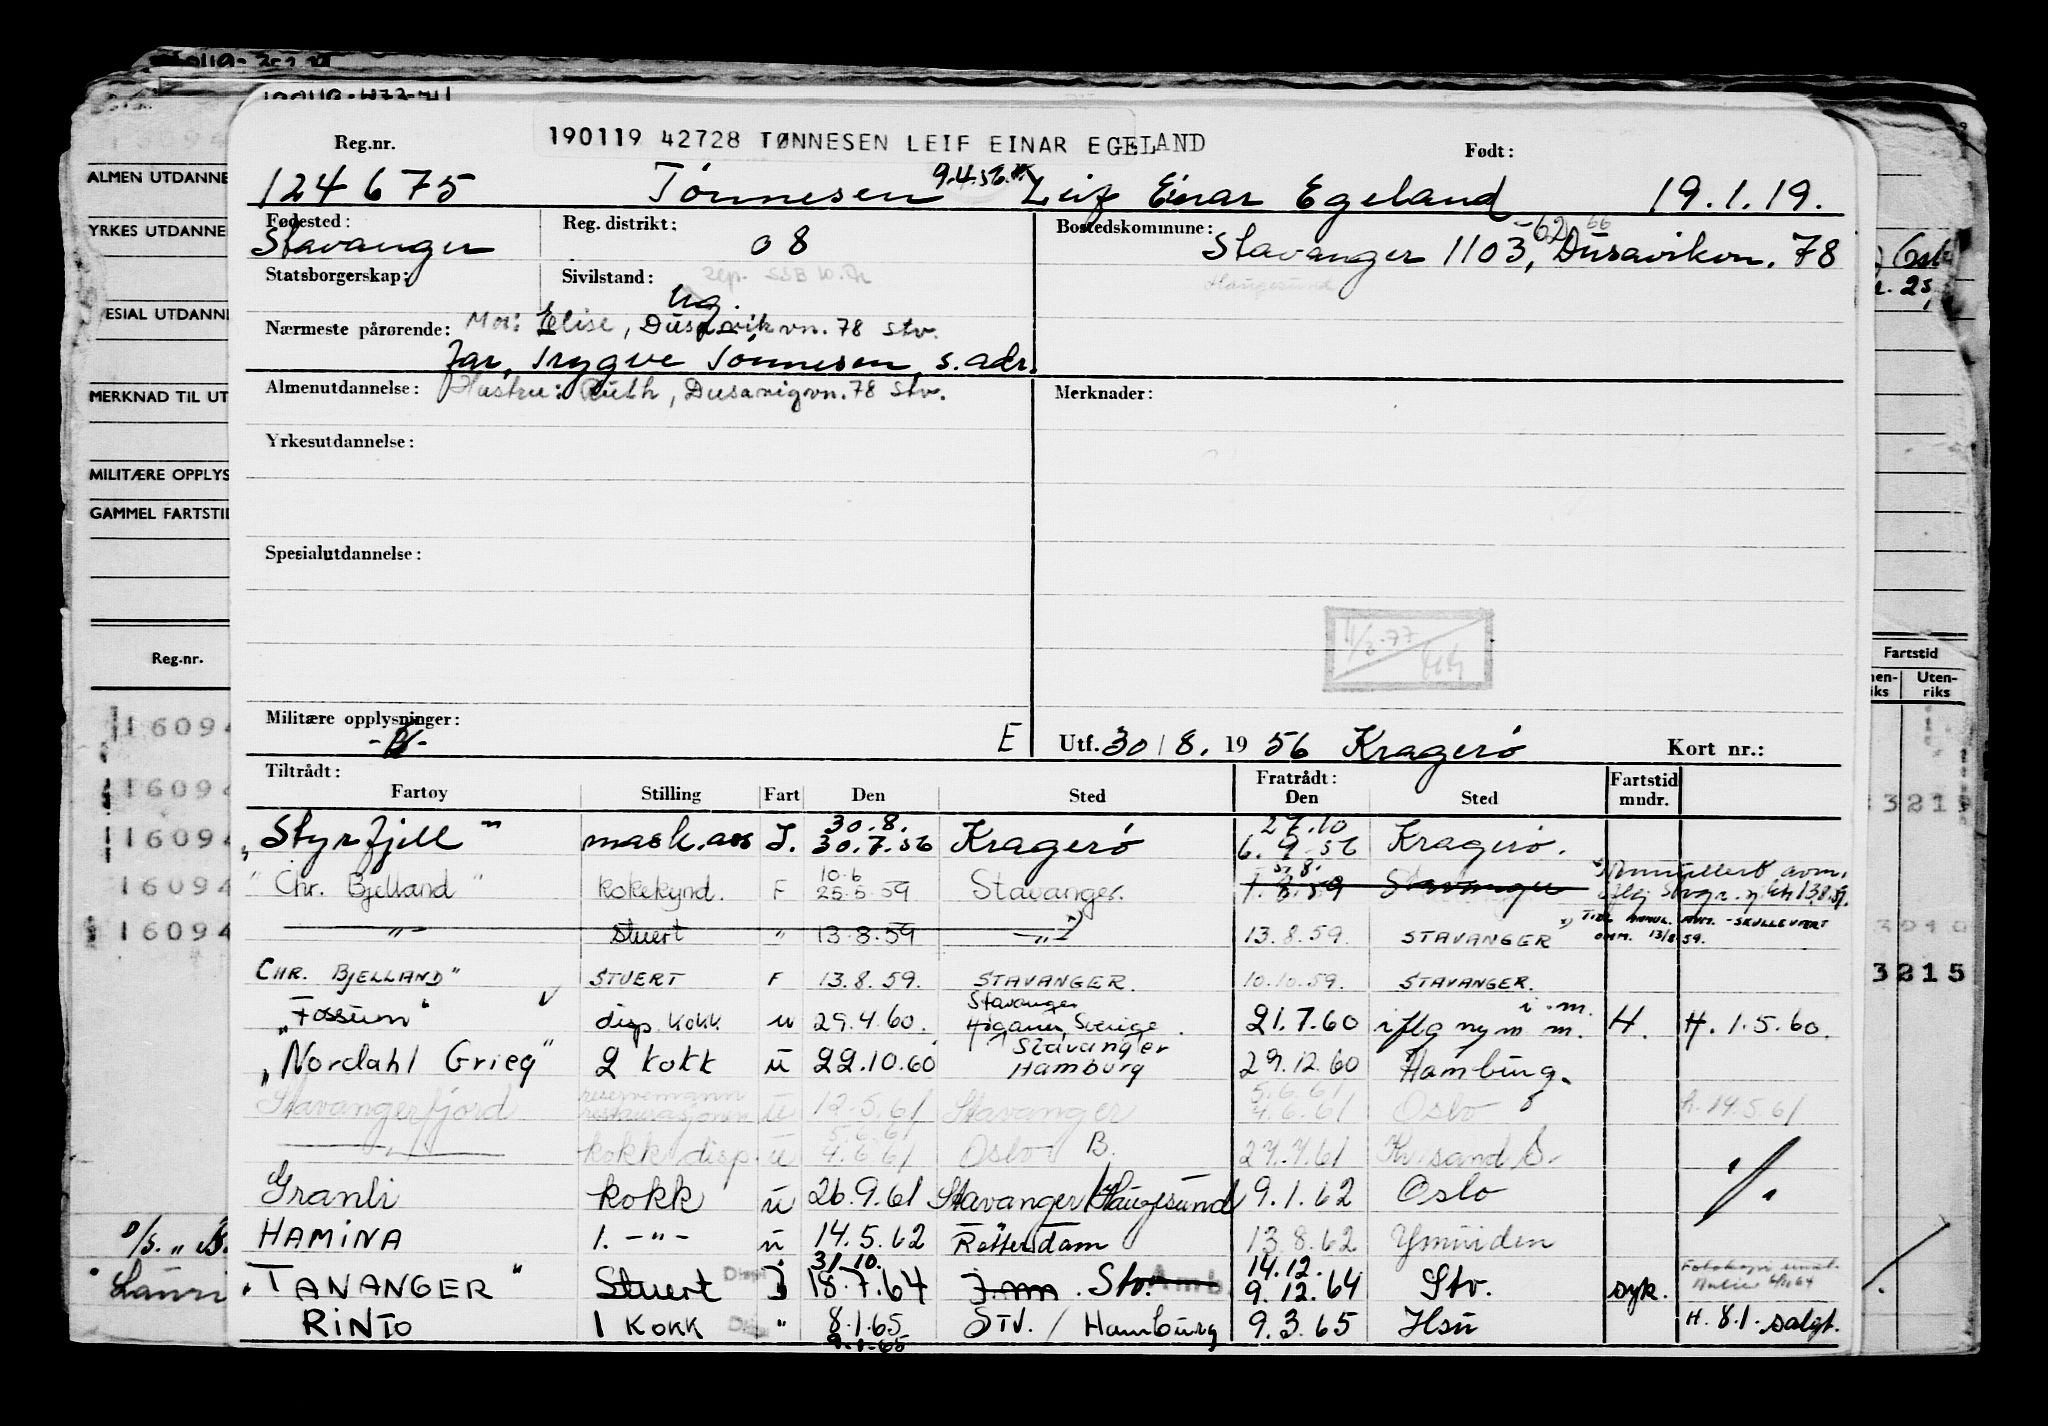 190119 42728 TØNNESEN LEIF EINAR EGELAND
Reg.nr. Født:
124675 Tønnesen 9.4.56 Leif Einar Egeland 19.1.19.
Fødested: Stavanger Reg. distrikt: 08 Bostedskommune: Stavanger 1103, -62 66 Dusavikvn. 78
Statsborgerskap: Sivilstand: Ug. sep. SSB Haugesund
Nærmeste pårørende: Mor: Elise, Dusavikvn. 78 Stv.
Far, Trygve Tønnesen, s. adr.
Almenutdannelse: Hustru: Ruth, Dusavigvn. 78 Stv. Merknader:
Yrkesutdannelse:
Spesialutdannelse:
Militære opplysninger: E Utf. 30/8. 1956 Kragerø Kort nr.:
Tiltrådt: Fratrådt: Fartstid
Fartøy Stilling Fart Den Sted Den Sted mndr.
30.8. 27.10
"Styrfjell" mask.ass I. 30.7.56 Kragerø 6.9.56 Kragerø.
10.6 5.8.
"Chr. Bjelland" kokekynd. F 25.5.59 Stavanger. 1.8.59 Stavanger
-"- Stuert " 13.8.59 -"- 13.8.59. STAVANGER
CHR. BJELLAND" STUERT F 13.8.59. STAVANGER. 10.10.59. STAVANGER.
Stavanger i.m.
"Fossum" disp. kokk u 29.4.60. Höganes, Sverige. 21.7.60 iflg ny m m. H. H. 1.5.60.
Stavanger
"Nordahl Grieg" 2 kokk u 22.10.60 Hamburg 29.12.60 Hamburg.
reservemann 5.6.61
Stavangerfjord restaurasjonen u 12.5.61 Stavanger 4.6.61 Oslo h. 14.5.61
5.6.61
-"- kokk disp. u 4.6.61 Oslo B. 27.7.61 Kr.sand S.
Granli kokk u 26.9.61 Stavanger/Haugesund 9.1.62 Oslo
HAMINA 1. -"- u 14.5.62 Rotterdam 13.8.62 Ymuiden
31.10. 14.12.
"TANANGER" Stuert I 18.7.64 I.m. Stv. 9.12.64 Stv. syk.
RINTO 1 KOKK " 8.1.65 STV. / Hamburg 9.3.65 Hsu H. 8.1. salgt.
9.1.65
ALMEN UTDANNE
YRKES UTDANNE
ESIAL UTDANNE
MERKNAD TIL UT
MILITÆRE OPPLYS
GAMMEL FARTSTID
Reg.nr.
16094
16094
16094
16094
16094
Fartstid
Uten-
riks
3215